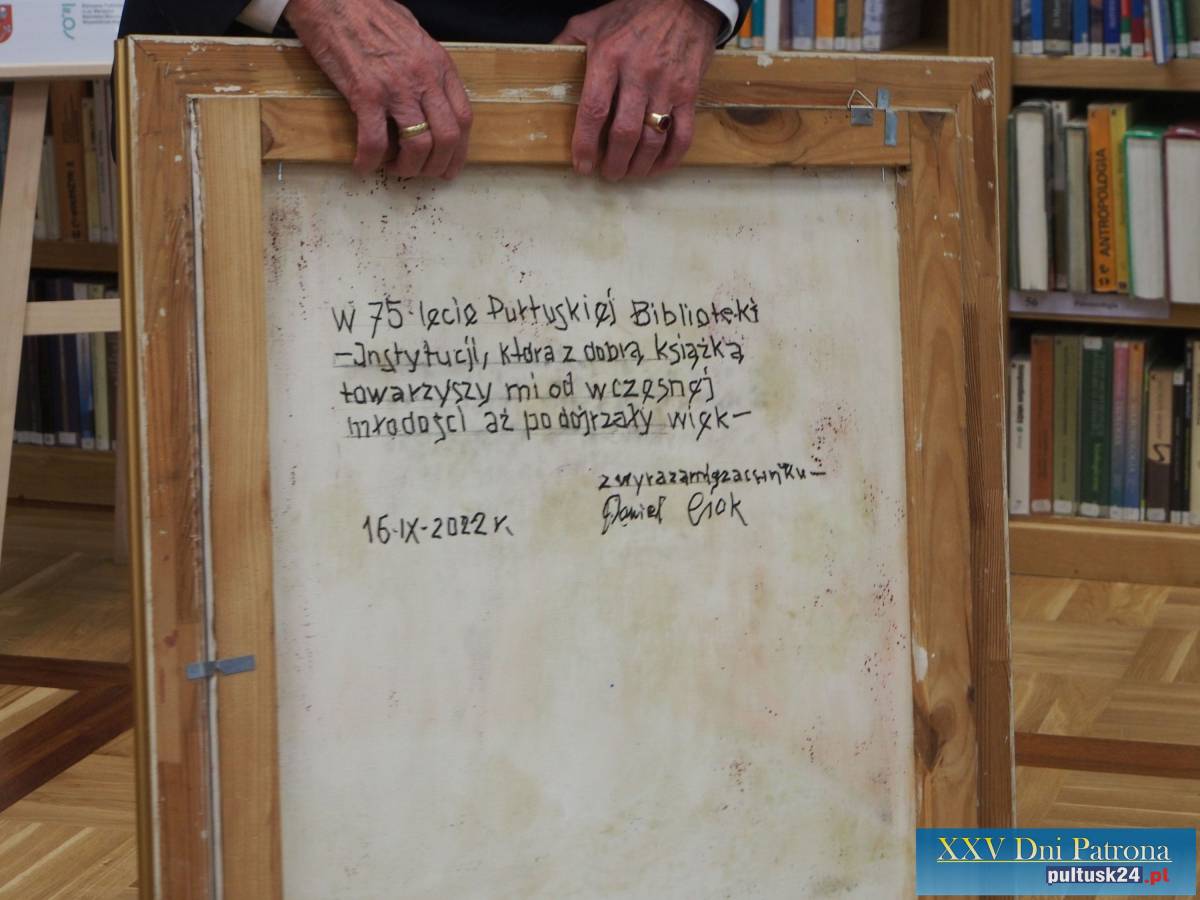 W 75-lecie Pułtuskiej Biblioteki
– Instytucji, która z dobrą książką
towarzyszy mi od wczesnej
młodości aż po dojrzały wiek –
z wyrazami szacunku –
Daniel
16-IX-2022 r.
ANTROPOLOGIA
XXV Dni Patrona
pultusk24.pl